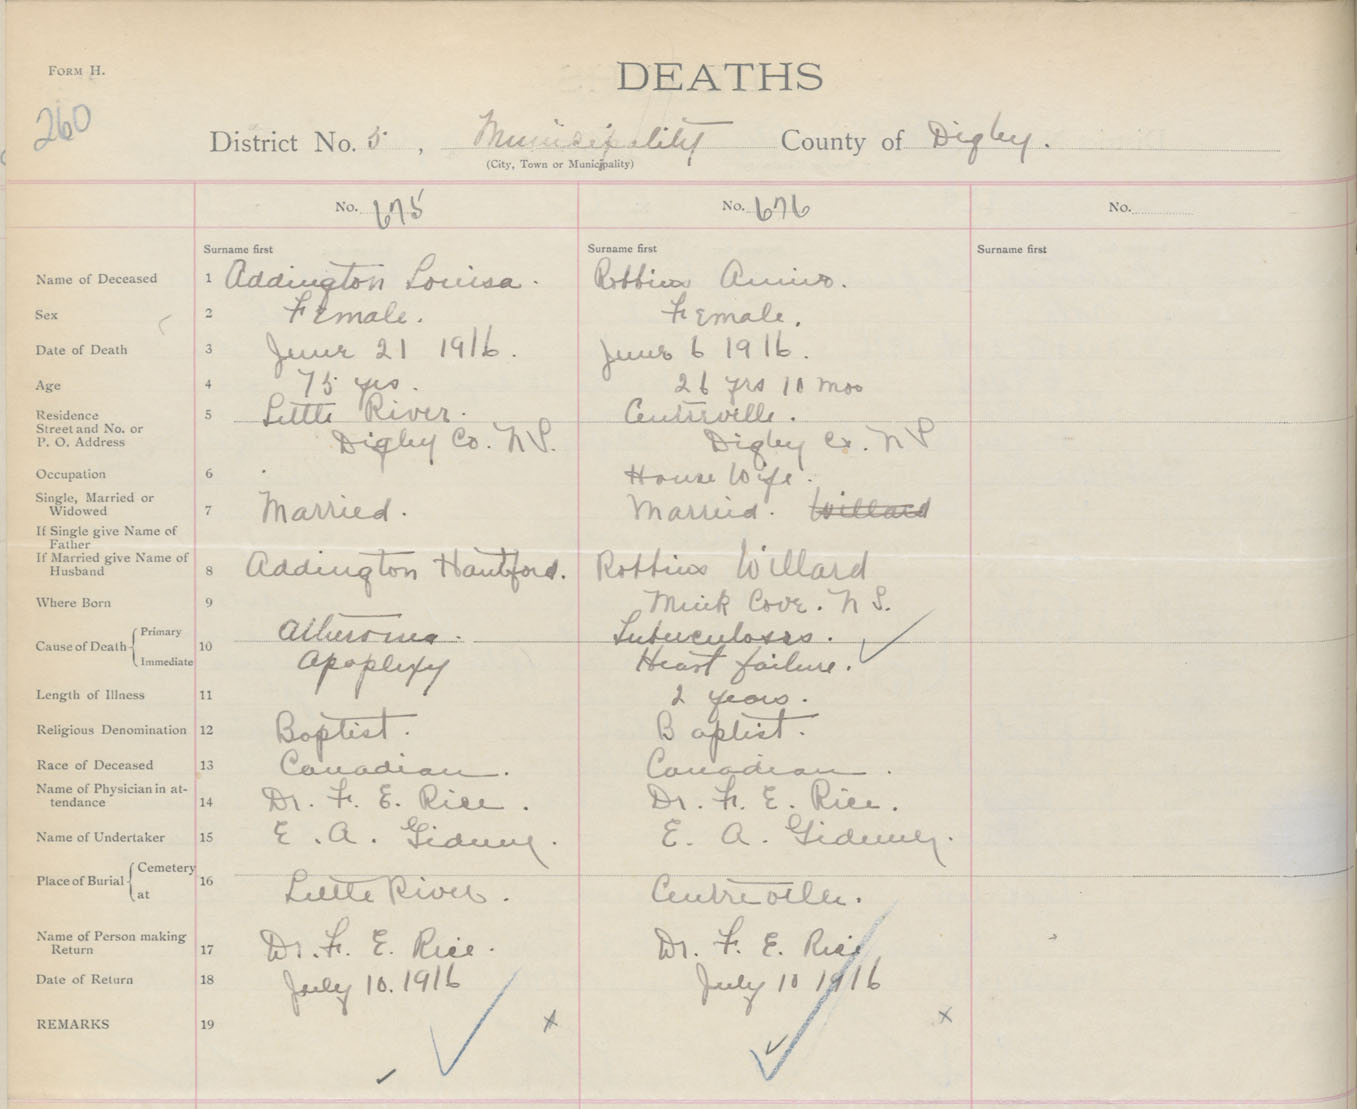 FORM H.
DEATHS
260
District No. 5, Municipality County of Digby.
(City, Town or Municipality)
No. 675 No. 676 No.
Surname first Surname first Surname first
Name of Deceased 1 Addington Louisa. Robbins Annie.
Sex 2 Female. Female.
Date of Death 3 June 21 1916. June 6 1916.
Age 4 75 yrs. 26 yrs 10 mos
Residence 5 Little River. Centreville.
Street and No. or
P. O. Address Digby Co. N S. Digby Co. N S
Occupation 6 House Wife.
Single, Married or
Widowed 7 Married. Married. Willard
If Single give Name of
Father
If Married give Name of
Husband 8 Addington Robbins Willard
Where Born 9 Mink Cove. N S.
Cause of Death Primary 10 Atheroma. Tuberculosis.
Immediate Apoplexy Heart failure.
Length of Illness 11 2 years.
Religious Denomination 12 Baptist. Baptist.
Race of Deceased 13 Canadian. Canadian.
Name of Physician in at-
tendance 14 Dr. F. E. Rice. Dr. F. E. Rice.
Name of Undertaker 15 E. A. Gidney. E. A. Gidney.
Place of Burial Cemetery 16
at Little River. Centreville.
Name of Person making
Return 17 Dr. F. E. Rice. Dr. F. E. Rice
Date of Return 18 July 10. 1916 July 10 1916
REMARKS 19 x x